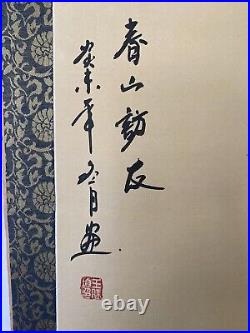 春山訪友
癸未年五月畫